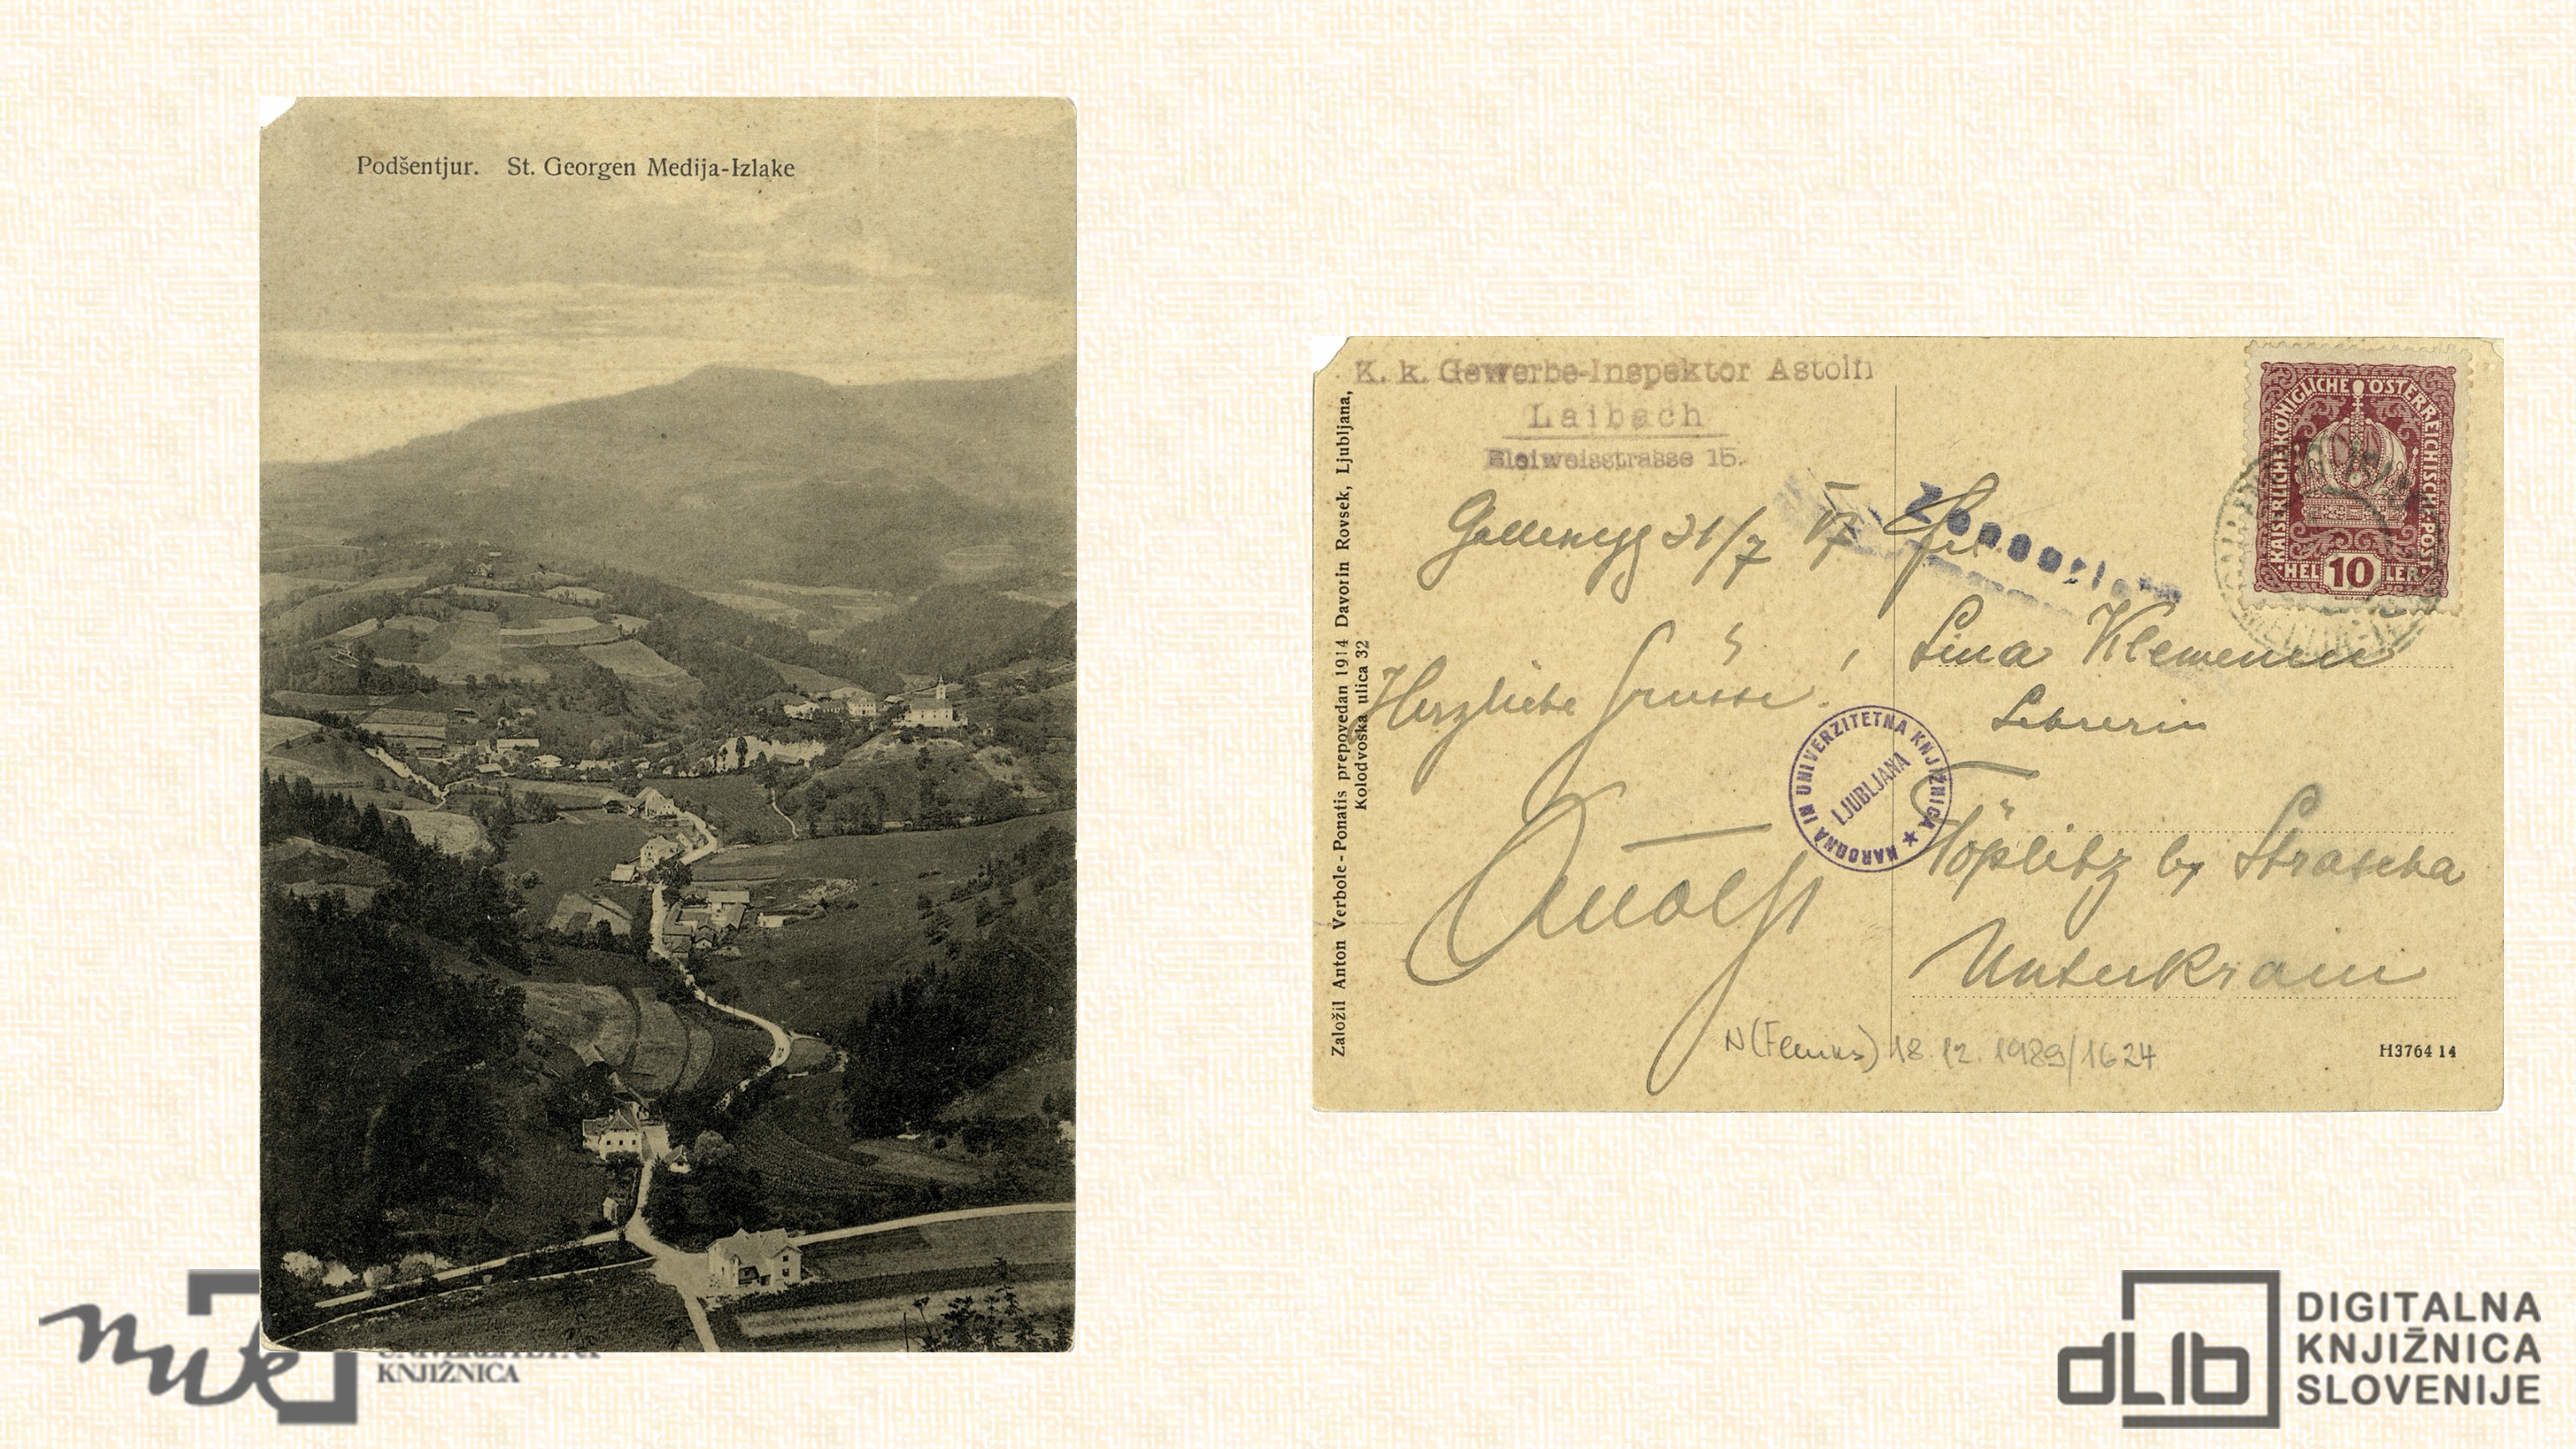 Podšentjur. St. Georgen Medija-Izlake
K. k. Gewerbe-Inspektor Astolfi
Laibach
Bleiweisstrasse 15.
Gallenegg 31/7 17
Herzliche Grüsse!
Astolfi
Založil Anton Verbole - Ponatis prepovedan 1914 Davorin Rovsek, Ljubljana,
Kolodvoska ulica 32
KAISERLICHE KÖNIGLICHE ÖSTERREICHISCHE POST
HELLER 10
Frl
Lina Klemencic
Lehrerin
Töplitz by Strascha
Unterkrain
NARODNA IN UNIVERZITETNA KNJIŽNICA ★
LJUBLJANA
18.12.1989/1624
H3764 14
nuk
KNJIŽNICA
dLib
DIGITALNA
KNJIŽNICA
SLOVENIJE